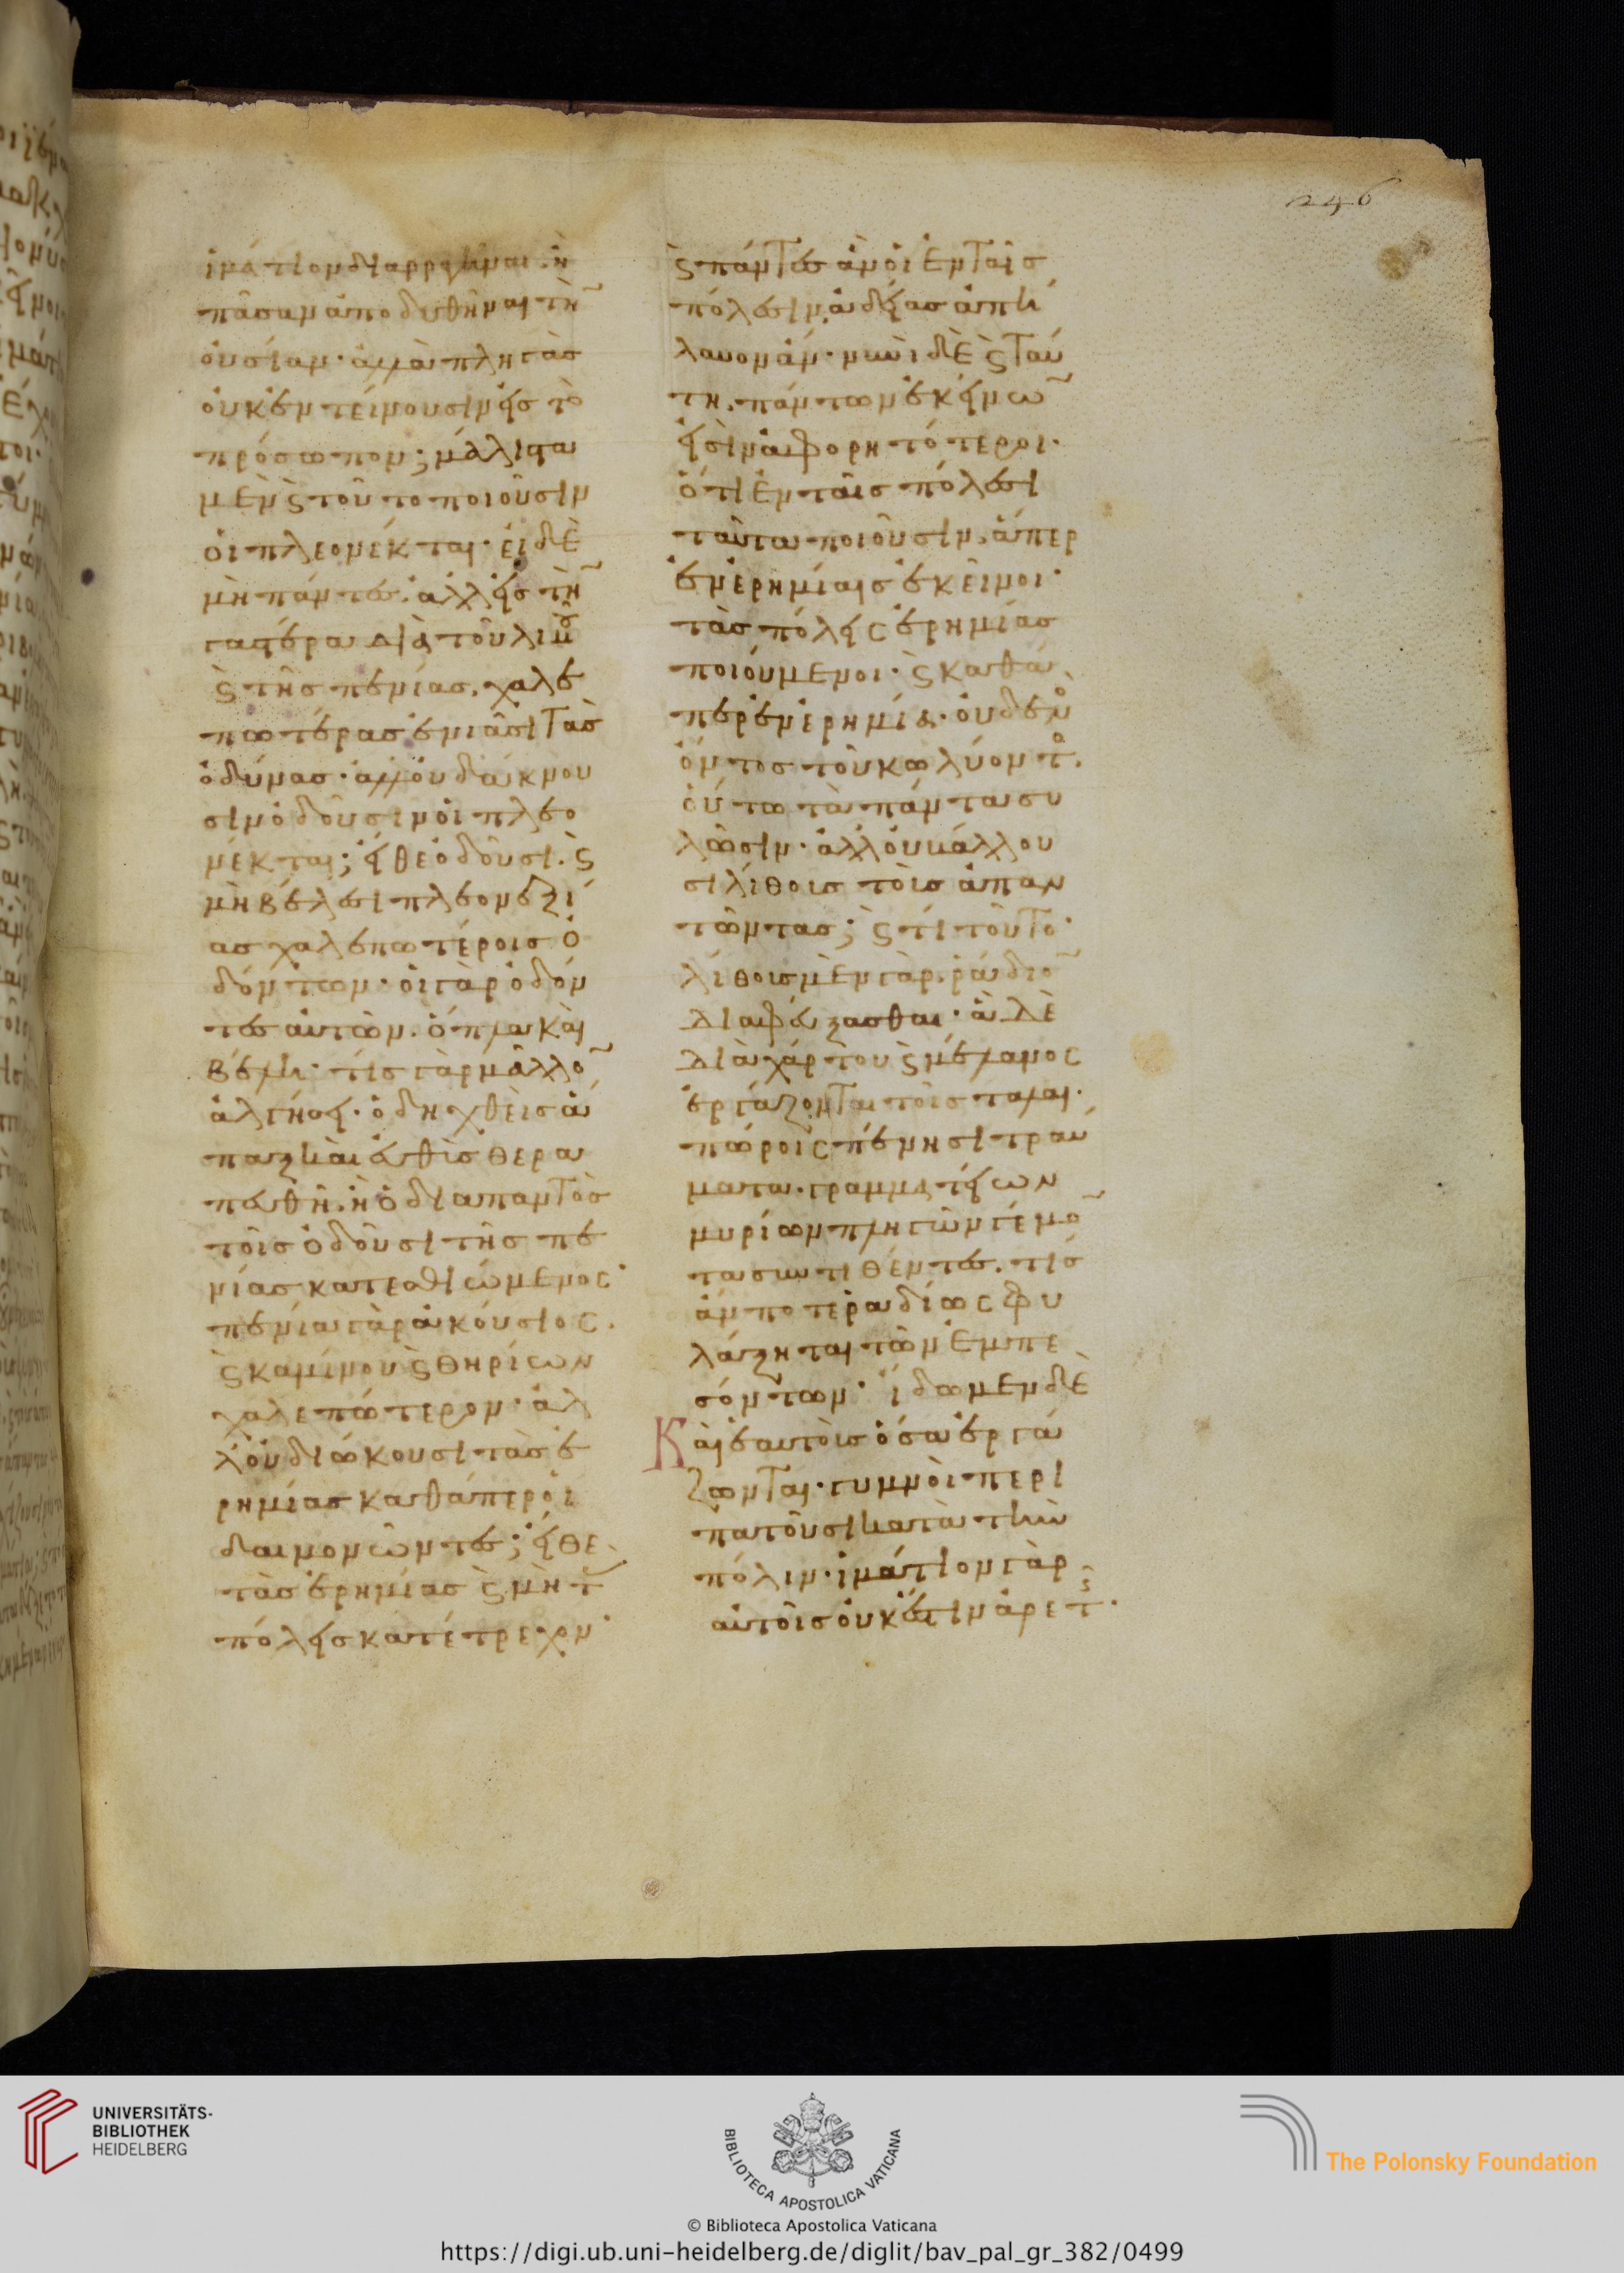 ἱμάτιον διαρραγῆναι· ἢ
πᾶσαν ἀποδυθῆναι τὴν
οὐσίαν· ἀλλὰ πληγὰς
οὐκ ἐντείνουσιν εἰς τὸ
πρόσωπον; μάλιστα
μὲν ϗ τοῦτο ποιοῦσιν
οἱ πλεονέκται· εἰ δὲ
μὴ πάντες, ἀλλ εἰς τὴν
γαστέρα διὰ τοῦ λιμοῦ
ϗ τῆς πενίας, χαλε
πωτέρας ἐνιᾶσι τὰς
ὀδύνας· ἀλλ οὐ δάκνου
σιν ὀδοῦσιν οἱ πλεο
νέκται; εἴθε ὀδοῦσι. ϗ
μὴ βέλεσι πλεονεξί
ας χαλεπωτέροις ὀ
δόντων· οἱ γὰρ ὀδόν
τες αὐτῶν. ὅπλα καὶ
βέλη· τίς γὰρ μᾶλλον
ἀλγήσει· ὁ δηχθεὶς ἅ
παξ καὶ εὐθὺς θερα
πευθῆ. ἢ ὁ διαπαντὸς
τοῖς ὀδοῦσι τῆς πε
νίας κατεσθιώμενος·
πενία γὰρ ἀκούσιος.
ϗ καμίνου ϗ θηρίων
χαλεπώτερον· ἀλ
λ οὐ διώκουσι τὰς ἐ
ρημίας καθάπερ οἱ
δαιμονῶντες; εἴθε
τὰς ἐρημίας ϗ μὴ τὰς
πόλεις κατέτρεχον·
ϗ πάντες ἂν οἱ ἐν ταῖς
πόλεσιν, ἀδείας ἀπή
λαυον ἄν· νυνὶ δὲ ϗ ταύ
τη, πάντων ἐκείνων
εἰσὶν ἀφορητότεροι·
ὅτι ἐν ταῖς πόλεσι
ταῦτα ποιοῦσιν, ἅπερ
ἐν ἐρημίαις ἐκεῖνοι·
τὰς πόλεις ἐρημίας
ποιούμενοι· ϗ καθά
περ ἐν ἐρημία· οὐδενὸς
ὄντος τοῦ κωλύοντος.
οὕτω τὰ πάντα συ
λῶσιν· ἀλλ οὐ βάλλου
σι λίθοις τοὺς ἀπαν
τῶντας; ϗ τί τοῦτο·
λίθους μὲν γὰρ, ῥάδιον
διαφύξασθαι· ἃ δὲ
διὰ χάρτου ϗ μέλανος
ἐργάζονται τοῖς ταλαι
πώροις πένησι τραύ
ματα· γραμματείων
μυρίων πληγῶν γέμον
τα συντιθέντες, τίς
ἄν ποτε ῥαδίως φυ
λάξηται τῶν ἐμπε
σόντων· ἴδωμεν δὲ
Καὶ ἑαυτοὺς ὅσα ἐργά
ζωνται· γυμνοὶ περι
πατοῦσι κατὰ τὴν
πόλιν· ἱμάτιον γὰρ
αὐτοῖς οὐκ ἔστιν ἀρετῆς·
246
UNIVERSITÄTS-
BIBLIOTHEK
HEIDELBERG
BIBLIOTECA APOSTOLICA VATICANA
© Biblioteca Apostolica Vaticana
The Polonsky Foundation
https://digi.ub.uni-heidelberg.de/diglit/bav_pal_gr_382/0499